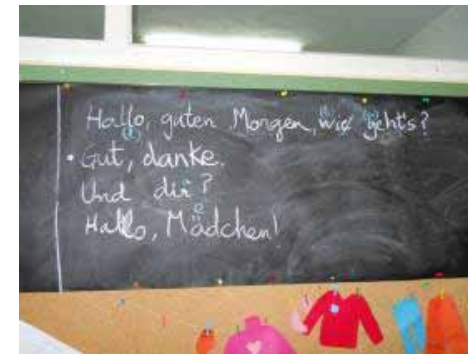 Hallo, guten Morgen, wie geht's?
• Gut, danke.
Und dir?
Hallo, Mädchen!